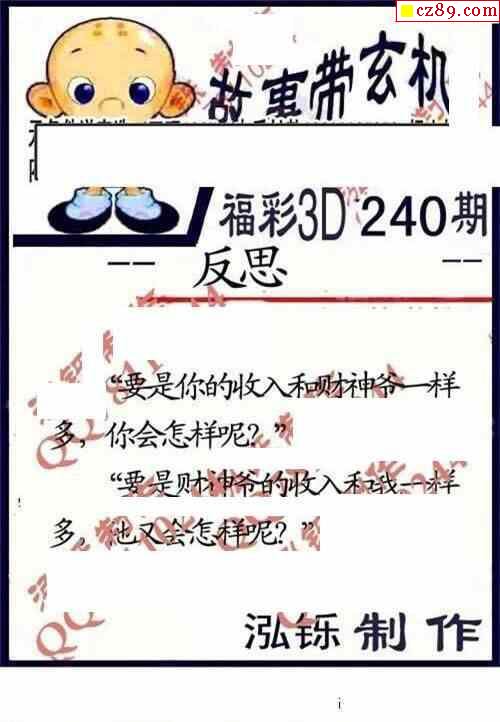 cz89.com
故事带玄机
福彩3D 240期
-- 反思 --
“要是你的收入和财神爷一样
多，你会怎样呢？”
“要是财神爷的收入和我一样
多，他又会怎样呢？”
泓铄制作
i